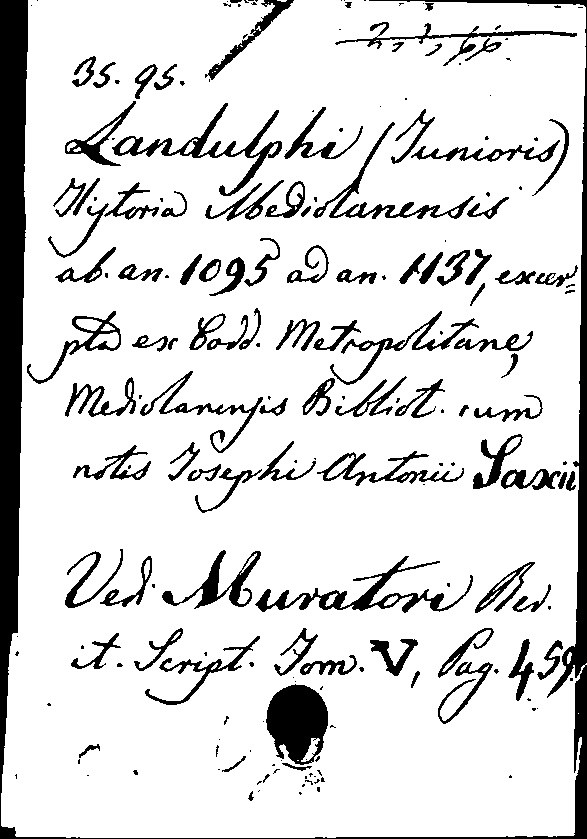 35. 95.
Landulphi (Junioris)
Hystoria Mediolanensis
ab. an. 1095 ad an. 1137, excer=
pta ex Codd. Metropolitane,
Mediolanensis Bibliot. cum
notis Josephi Antonii Saxii
Vedi Muratori Rer.
it. Script. Tom. V, Pag. 459.